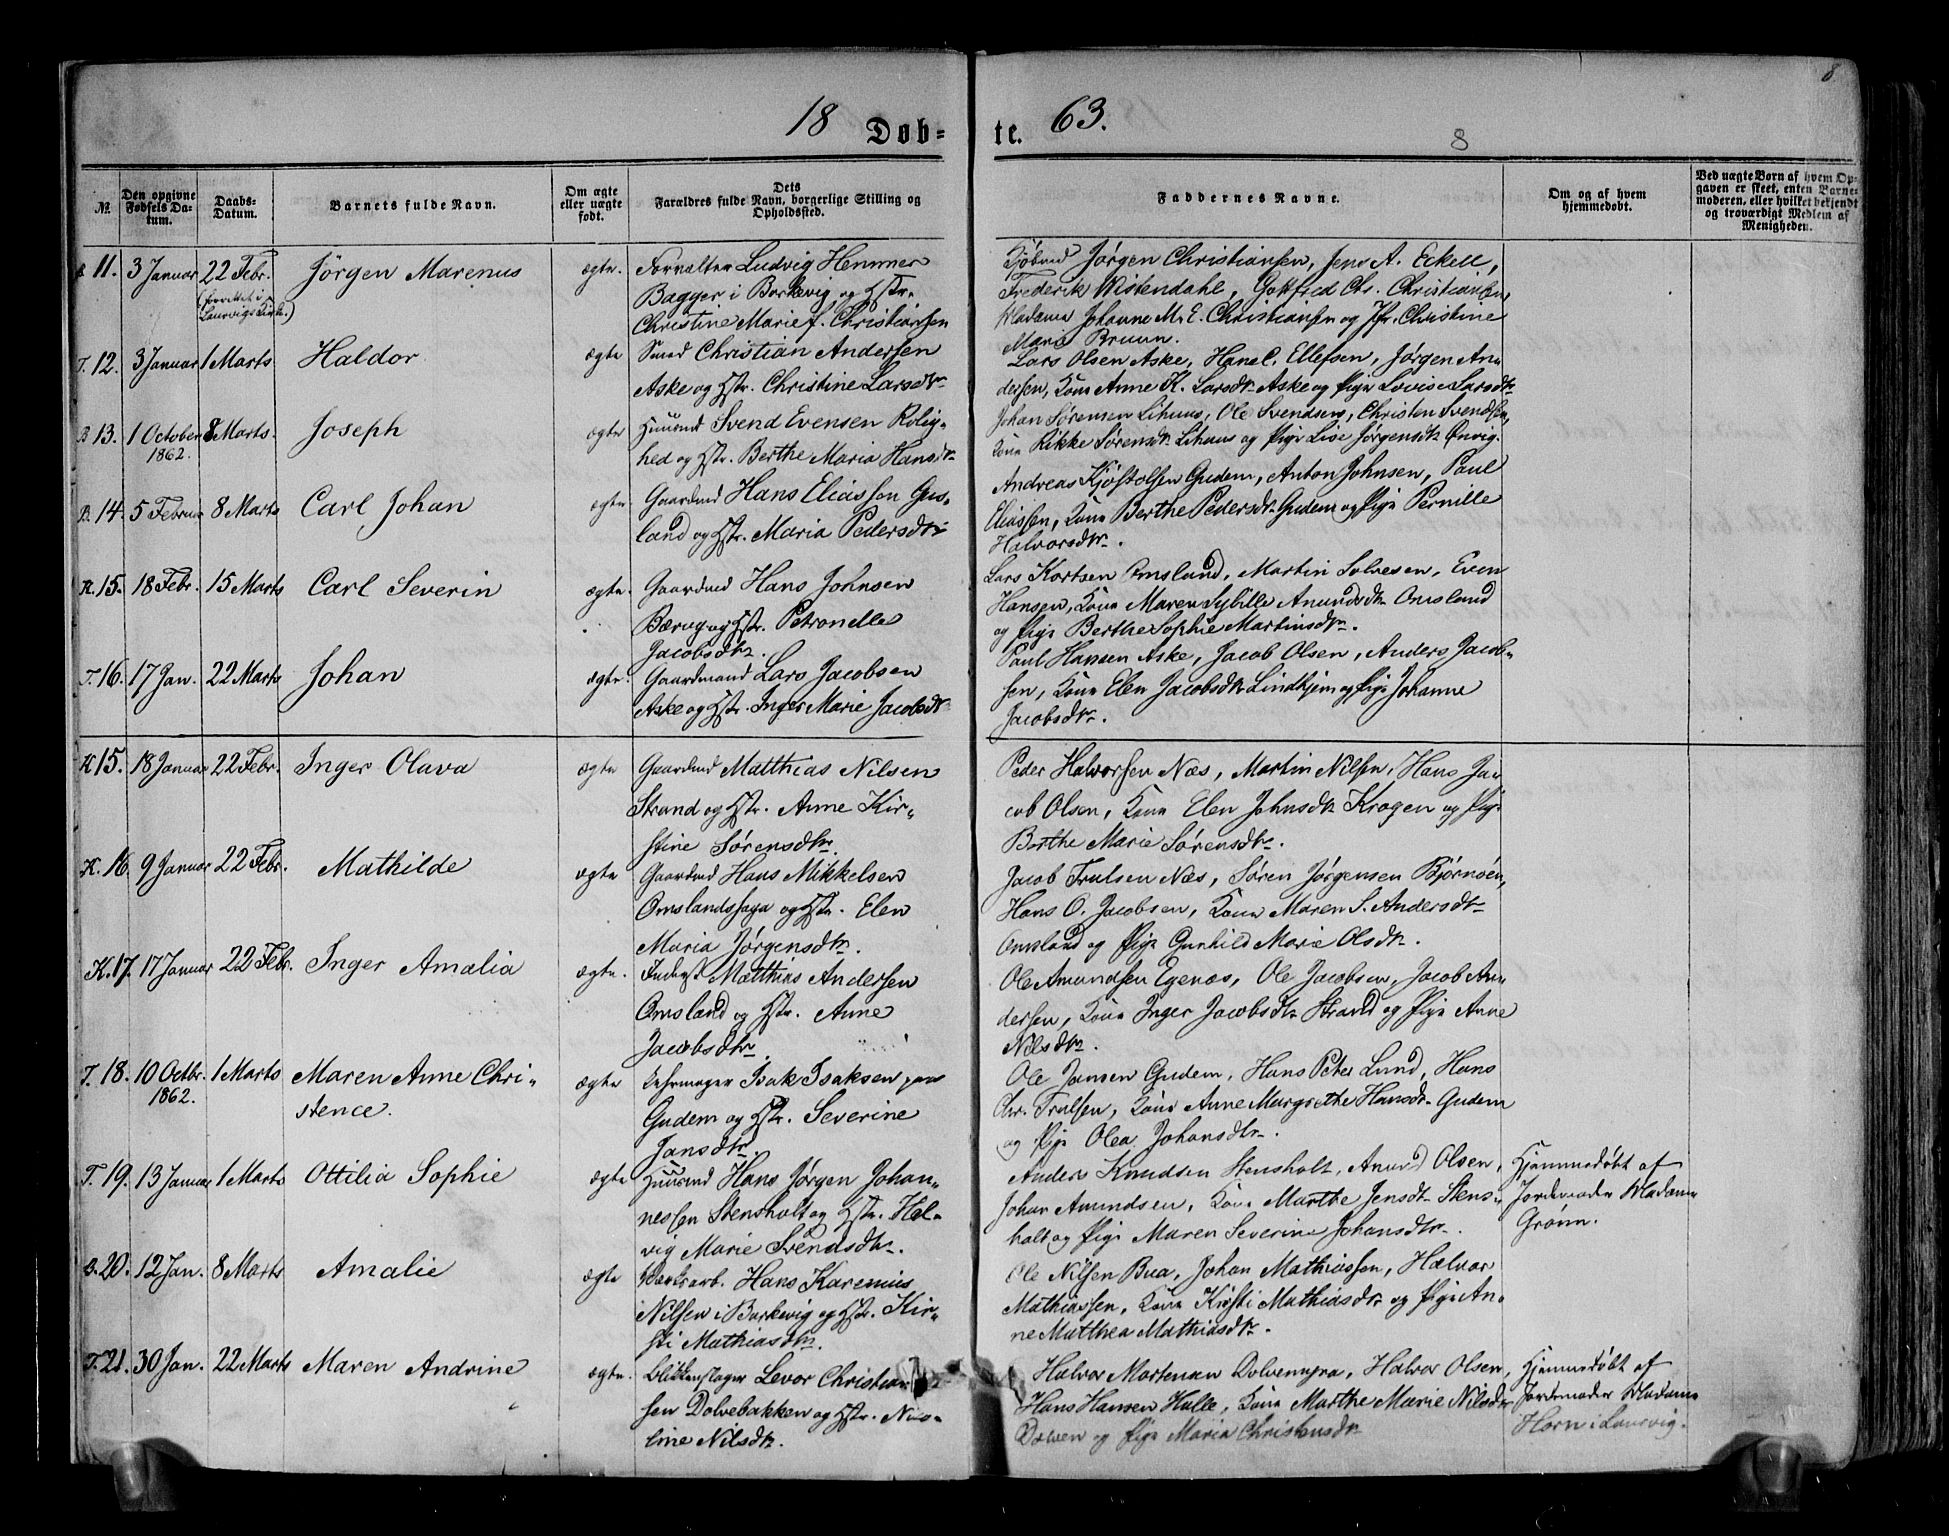 18 Døb-
te. 63.
8
8
№
Den opgivne
Fødsels Da-
tum.
Daabs-
Datum.
Barnets fulde Navn.
Om ægte
eller uægte
født.
Dets
Forældres fulde Navn, borgerlige Stilling og
Opholdssted.
Faddernes Navne.
Om og af hvem
hjemmedøbt.
Ved uægte Børn af hvem Op-
gaven er skeet, enten Barne-
moderen, eller hvilket bekjendt
og troværdigt Medlem af
Menigheden.
11. 3 Januar 22 Febr. Jörgen Marenus ægte. Forvalter Ludvig Hemmer
(forrettet i
Laurvigs Kirke)
Bagger i Barkevig og Hstr.
Christine Marie f. Christiansen
Jørgen Christiansen, Jens A. Eckell,
Frederik Wistendahl, Gottfred Chr. Christiansen,
Madame Johanne M. E. Christiansen og Jfr. Christine
Marie Bruun.
T. 12. 3 Januar 1 Marts Haldor ægte Smed Christian Andersen
Aske og Hstr. Christine Larsdtr.
Lars Olsen Aske, Hans C. Ellefsen, Jørgen An-
dersen, Kone Anne K. Larsdtr. Aske og Pige Lovise Larsdtr
B 13. 1 October 8 Marts. Joseph ægte Huusmd Svend Evensen Rolig-
1862.
hed og Hstr. Berthe Maria Hansdtr
Johan Sørensen Lihuus, Ole Svendsen, Christen Svendsen,
Kone Rikke Sørensdtr. Lihuus og Pige Lise Jørgensdtr. Ønvig.
B. 14. 5 Februar 8 Marts Carl Johan ægte. Gaardmd Hans Eliassen Gus-
land og Hstr. Maria Pedersdtr.
Andreas Kjøstolsen Gudem, Anton Johnsen, Paul
Eliassen, Kone Berthe Pedersdtr. Gudem og Pige Pernille
Halvorsdtr.
K. 15. 18 Febr. 15 Marts Carl Severin ægte. Gaardmd Hans Johnsen
Bærug og Hstr. Petronelle
Jacobsdtr.
Lars Kortsen Omsland, Martin Solvesen, Even
Hansen, Kone Maren Sybille Anundsdtr. Omsland
og Pige Berthe Sophie Martinsdtr.
T. 16. 17 Jan. 22 Marts Johan ægte. Gaardmand Lars Jacobsen
Aske og Hstr. Inger Marie Jacobsdtr
Paul Hansen Aske, Jacob Olsen, Anders Jacob-
sen, Kone Elen Jacobsdtr. Lindhjem og Pige Johanne
Jacobsdtr.
K 15. 18 Januar 22 Febr. Inger Olava ægte Gaardmd Matthias Nilsen
Strand og Hstr. Anne Kir-
stine Sørensdtr.
Peder Halvorsen Næs, Martin Nilsen, Hans Ja-
cob Olsen, Kone Elen Johnsdtr. Krogen og Pige
Berthe Marie Sørensdtr.
K. 16 9 Januar 22 Febr. Mathilde ægte Gaardmd Hans Mikkelsen
Omslandssaga og Hstr. Elen
Maria Jørgensdtr.
Jacob Trulsen Næs, Søren Jørgensen Bjørnøen,
Hans O. Jacobsen, Kone Maren S. Andersdtr.
Omsland og Pige Gunhild Marie Olsdtr.
K. 17. 17 Januar 22 Febr. Inger Amalia ægte. Inderst Matthias Andersen
Omsland og Hstr. Anne
Jacobsdtr.
Ole Amundsen Egenæs, Ole Jacobsen, Jacob An-
dersen, Kone Inger Jacobsdtr. Strand og Pige Anne
Nilsdtr.
T. 18. 10 Octbr. 1 Marts Maren Anne Chri- ægte Isak Isaksen
1862.
stence.
Gudem og Hstr. Severine
Jansdtr.
Ole Jansen Gudem, Hans Peter Lund, Hans
Chr. Trulsen, Kone Anne Margrethe Hansdtr. Gudem
og Pige Olea Johansdtr.
T. 19. 13 Januar 1 Marts Ottilia Sophie ægte Huusmd Hans Jørgen Johan-
nessen Stensholt og Hstr. Hel-
vig Marie Svendsdtr.
Anders Knudsen Stensholt, Anund Olsen,
Johan Amundsen, Kone Marthe Jensdtr. Stens-
holt og Pige Maren Severine Johansdtr.
Hjemmedøbt af
Jordemoder Madame
Grönn.
B. 20. 12 Jan. 8 Marts Amalie ægte Værksarb. Hans Karenius
Nilsen i Barkevig og Hstr. Kir-
sti Mathiasdtr.
Ole Nilsen Bua, Johan Mathiassen, Halvor
Mathiassen, Kone Kirsti Mathiasdtr. og Pige An-
ne Matthea Mathiasdtr.
T. 21. 30 Jan. 22 Marts Maren Andrine ægte. Blikkenslager Levor Christian-
sen Dolvebakken og Hstr. Nico-
line Nilsdtr.
Halvor Mortensen Dolvenmyra, Halvor Olsen,
Hans Hansen Halle, Kone Marthe Marie Nilsdtr.
Dolven og Pige Maria Christensdtr.
Hjemmedøbt af
Jordemoder Madame
Horn i Laurvig.